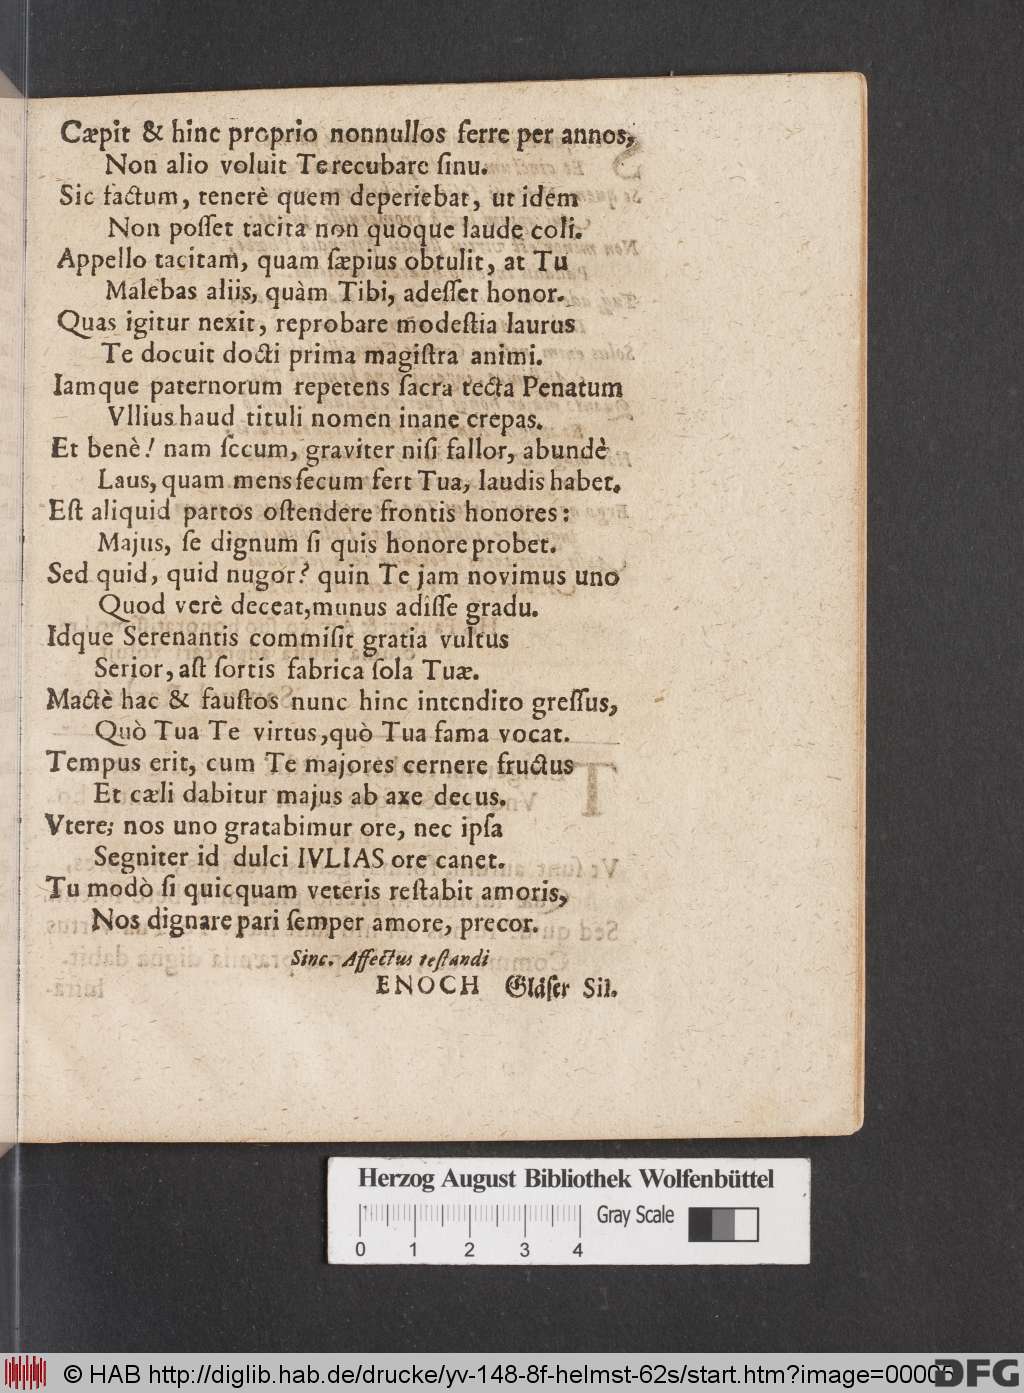 Cæpit & hinc proprio nonnullos ferre per annos,
Non alio voluit Te recubare ſinu.
Sic factum, tenerè quem deperiebat, ut idem
Non poſſet tacita non quoque laude coli.
Appello tacitam, quam ſæpius obtulit, at Tu
Malebas aliis, quàm Tibi, adeſſet honor.
Quas igitur nexit, reprobare modeſtia laurus
Te docuit docti prima magiſtra animi.
Iamque paternorum repetens ſacra tecta Penatum
Vllius haud tituli nomen inane crepas.
Et benè! nam ſecum, graviter niſi fallor, abundè
Laus, quam mens ſecum fert Tua, laudis habet.
Eſt aliquid partos oſtendere frontis honores:
Majus, ſe dignum ſi quis honore probet.
Sed quid, quid nugor? quin Te jam novimus uno
Quod verè deceat, munus adiſſe gradu.
Idque Serenantis commiſit gratia vultus
Serior, aſt ſortis fabrica ſola Tuæ.
Mactè hac & fauſtos nunc hinc intendito greſſus,
Quò Tua Te virtus, quò Tua fama vocat.
Tempus erit, cum Te majores cernere fructus
Et cæli dabitur majus ab axe decus.
Vtere; nos uno gratabimur ore, nec ipſa
Segniter id dulci IVLIAS ore canet.
Tu modò ſi quicquam veteris reſtabit amoris,
Nos dignare pari ſemper amore, precor.
Sinc. Affectus teſtandi
ENOCH Gläſer Sil.
Herzog August Bibliothek Wolfenbüttel
Gray Scale
0 1 2 3 4
© HAB http://diglib.hab.de/drucke/yv-148-8f-helmst-62s/start.htm?image=00005
DFG